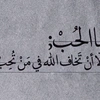 ما الحُبّ؛
إلا أنْ تَخاف الله في مَنْ تُحِبّ